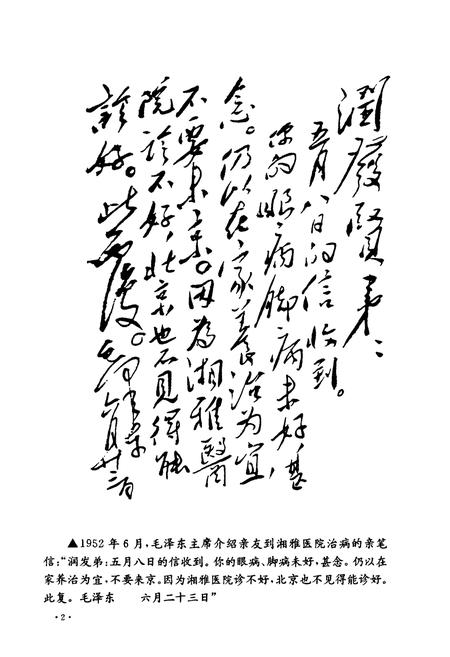 潤發賢弟：
五月八日的信收到。
你的眼病脚病未好，甚
念。仍以在家养治为宜，
不要来京。因为湘雅醫
院诊不好，北京也不見得能
診好。此复。毛泽东
六月廿三日
▲1952年6月，毛泽东主席介绍亲友到湘雅医院治病的亲笔
信：“润发弟：五月八日的信收到。你的眼病、脚病未好，甚念。仍以在
家养治为宜，不要来京。因为湘雅医院诊不好，北京也不见得能诊好。
此复。毛泽东　　六月二十三日”
·2·